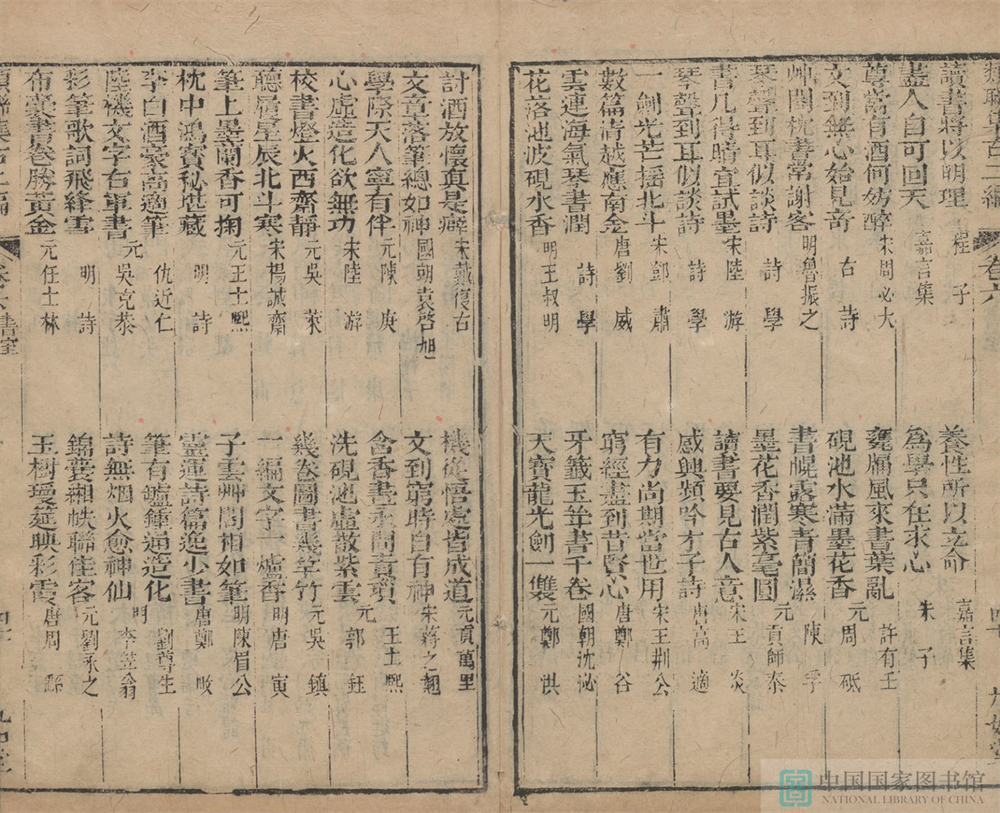 讀書將以明理 程子 養性所以立命 嘉言集
盡人自可回天 嘉言集 為學只在求心 朱子
尊當有酒何妨醉 宋周必大 甕牖風來書葉亂 許有壬
文到無心始見奇 古詩 硯池水滿墨花香 元周砥
艸閣枕書常謝客 明魯振之 書幌露寒青簡濕 陳孚
琴聲到耳似談詩 詩學 墨花香潤紫毫圓 元貢師泰
書几得晴宜試墨 宋陸游 讀書要見古人意 宋王炎
琴聲到耳似談詩 詩學 感興頻吟才子詩 唐高適
一劍光芒搖北斗 宋鄧肅 有力尚期當世用 宋王荊公
數篇清越應南金 唐劉威 窮經盡到昔賢心 唐鄭谷
雲連海氣琴書潤 詩學 牙籤玉並書千卷 國朝沈泌
花落池波硯水香 明王叔明 天寶龍光劍一雙 元鄭洪
討酒放懷真是癖 宋戴復古 機從悟處皆成道 元貢萬里
文章落筆總如神 國朝袁啓旭 文到窮時自有神 宋蔣之翹
學際天人寧有伴 元陳庚 含香畫永門賁 王士熙
心虛造化欲無功 宋陸游 洗硯池虛散紫雲 元郭鈺
校書燈火西齋靜 元吳萊 幾卷圖書幾竿竹 元吳鎮
聽履星辰北斗寒 宋楊誠齋 一編文字一爐香 明唐寅
筆上墨蘭香可掬 元王士熙 子雲艸閣相如筆 明陳眉公
枕中鴻寶秘堪藏 明詩 靈運詩篇逸少書 唐鄭畋
李白酒豪高適筆 仇近仁 筆有鑪錘通造化 劉尊生
陸機文字右軍書 元吳克恭 詩無烟火愈神仙 明李笠翁
彩筆歌詞飛絳雪 明詩 錦囊緗帙聯佳客 元劉永之
布囊書卷勝黃金 元任士林 玉樹瓊筵映彩霞 唐周繇
卷六 書室
中国国家图书馆
NATIONAL LIBRARY OF CHINA